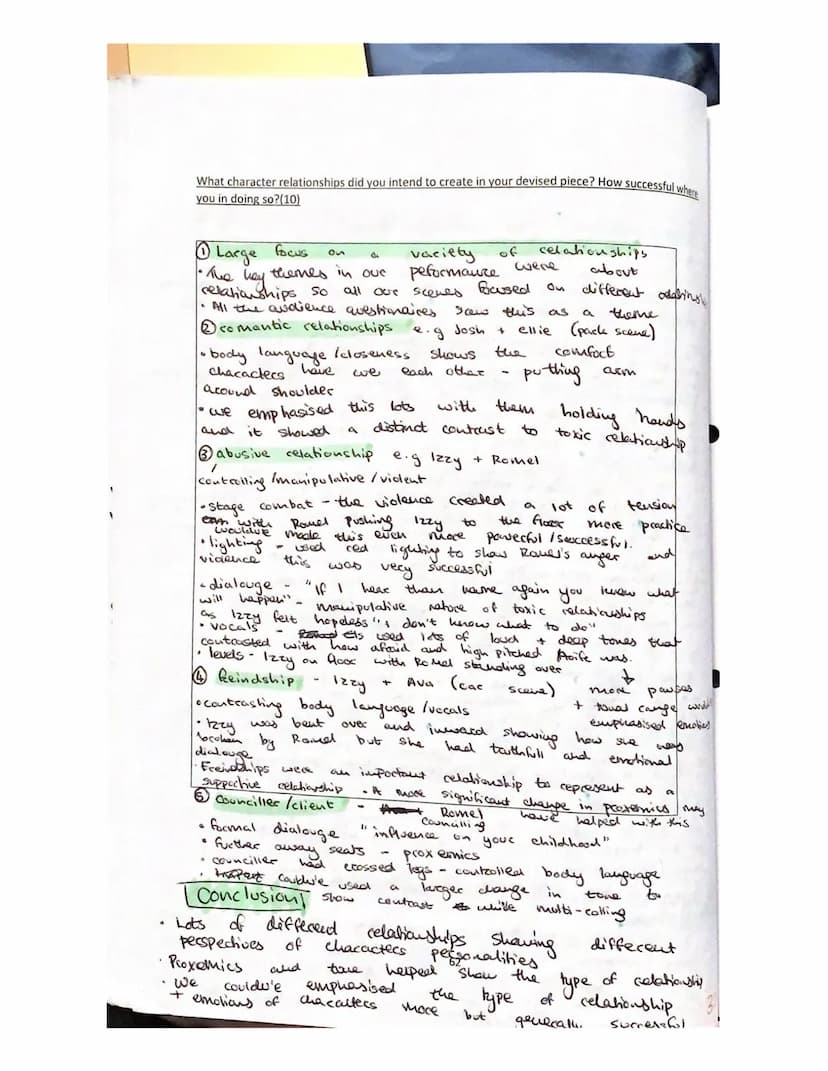 What character relationships did you intend to create in your devised piece? How successful where
you in doing so?(10)
① Large focus on a variety of relationships
• The key themes in our peformance were about
relationships so all our scenes focused on different
• All the audience questionaires saw this as a theme
② romantic relationships e.g Josh + ellie (park scene)
• body language /closeness shows the comfort
characters have we each other - putting arm
around shoulder
• we emphasised this lots with them holding hands
and it showed a distinct contrast to toxic relationship
③ abusive relationship e.g Izzy + Romel
controlling /manipulative / violent
• stage combat - the violence created a lot of tension
with Romel pushing Izzy to the floor more practice
would've made this even more powerful /successful.
• lighting - used red lighting to show Romel's anger and
violence this was very successful
• dialouge - "If I hear than name again you know what
will happen" - manipulative nature of toxic relationships
as Izzy felt hopeless "I don't know what to do"
• vocals - used lots of loud + deep tones that
contrasted with how afraid and high pitched Aoife was.
• levels - Izzy on floor with Romel standing over
④ freindship - Izzy + Ava (car scene) more pauses
• contrasting body language /vocals + tonal range would
emphasised emotions
• Izzy was bent over and inward showing how she was
broken by Romel but she had truthfull and emotional
dialouge
• Freindships were an important relationship to represent as a
supportive relationship • A more significant change in proxemics may
have helped with this
⑤ councillor /client - Romel councilling
• formal dialouge "influence on your childhood"
• further away seats - proxemics
• counciller had crossed legs - controlled body language
• could've used a larger change in tone to
show contrast while multi-rolling
Conclusion
• Lots of different relationships showing different
perspectives of characters personalities
62
• Proxemics and tone helped show the type of relationship
• We could've emphasised the type of relationship
+ emotions of characters more but generally successful
3